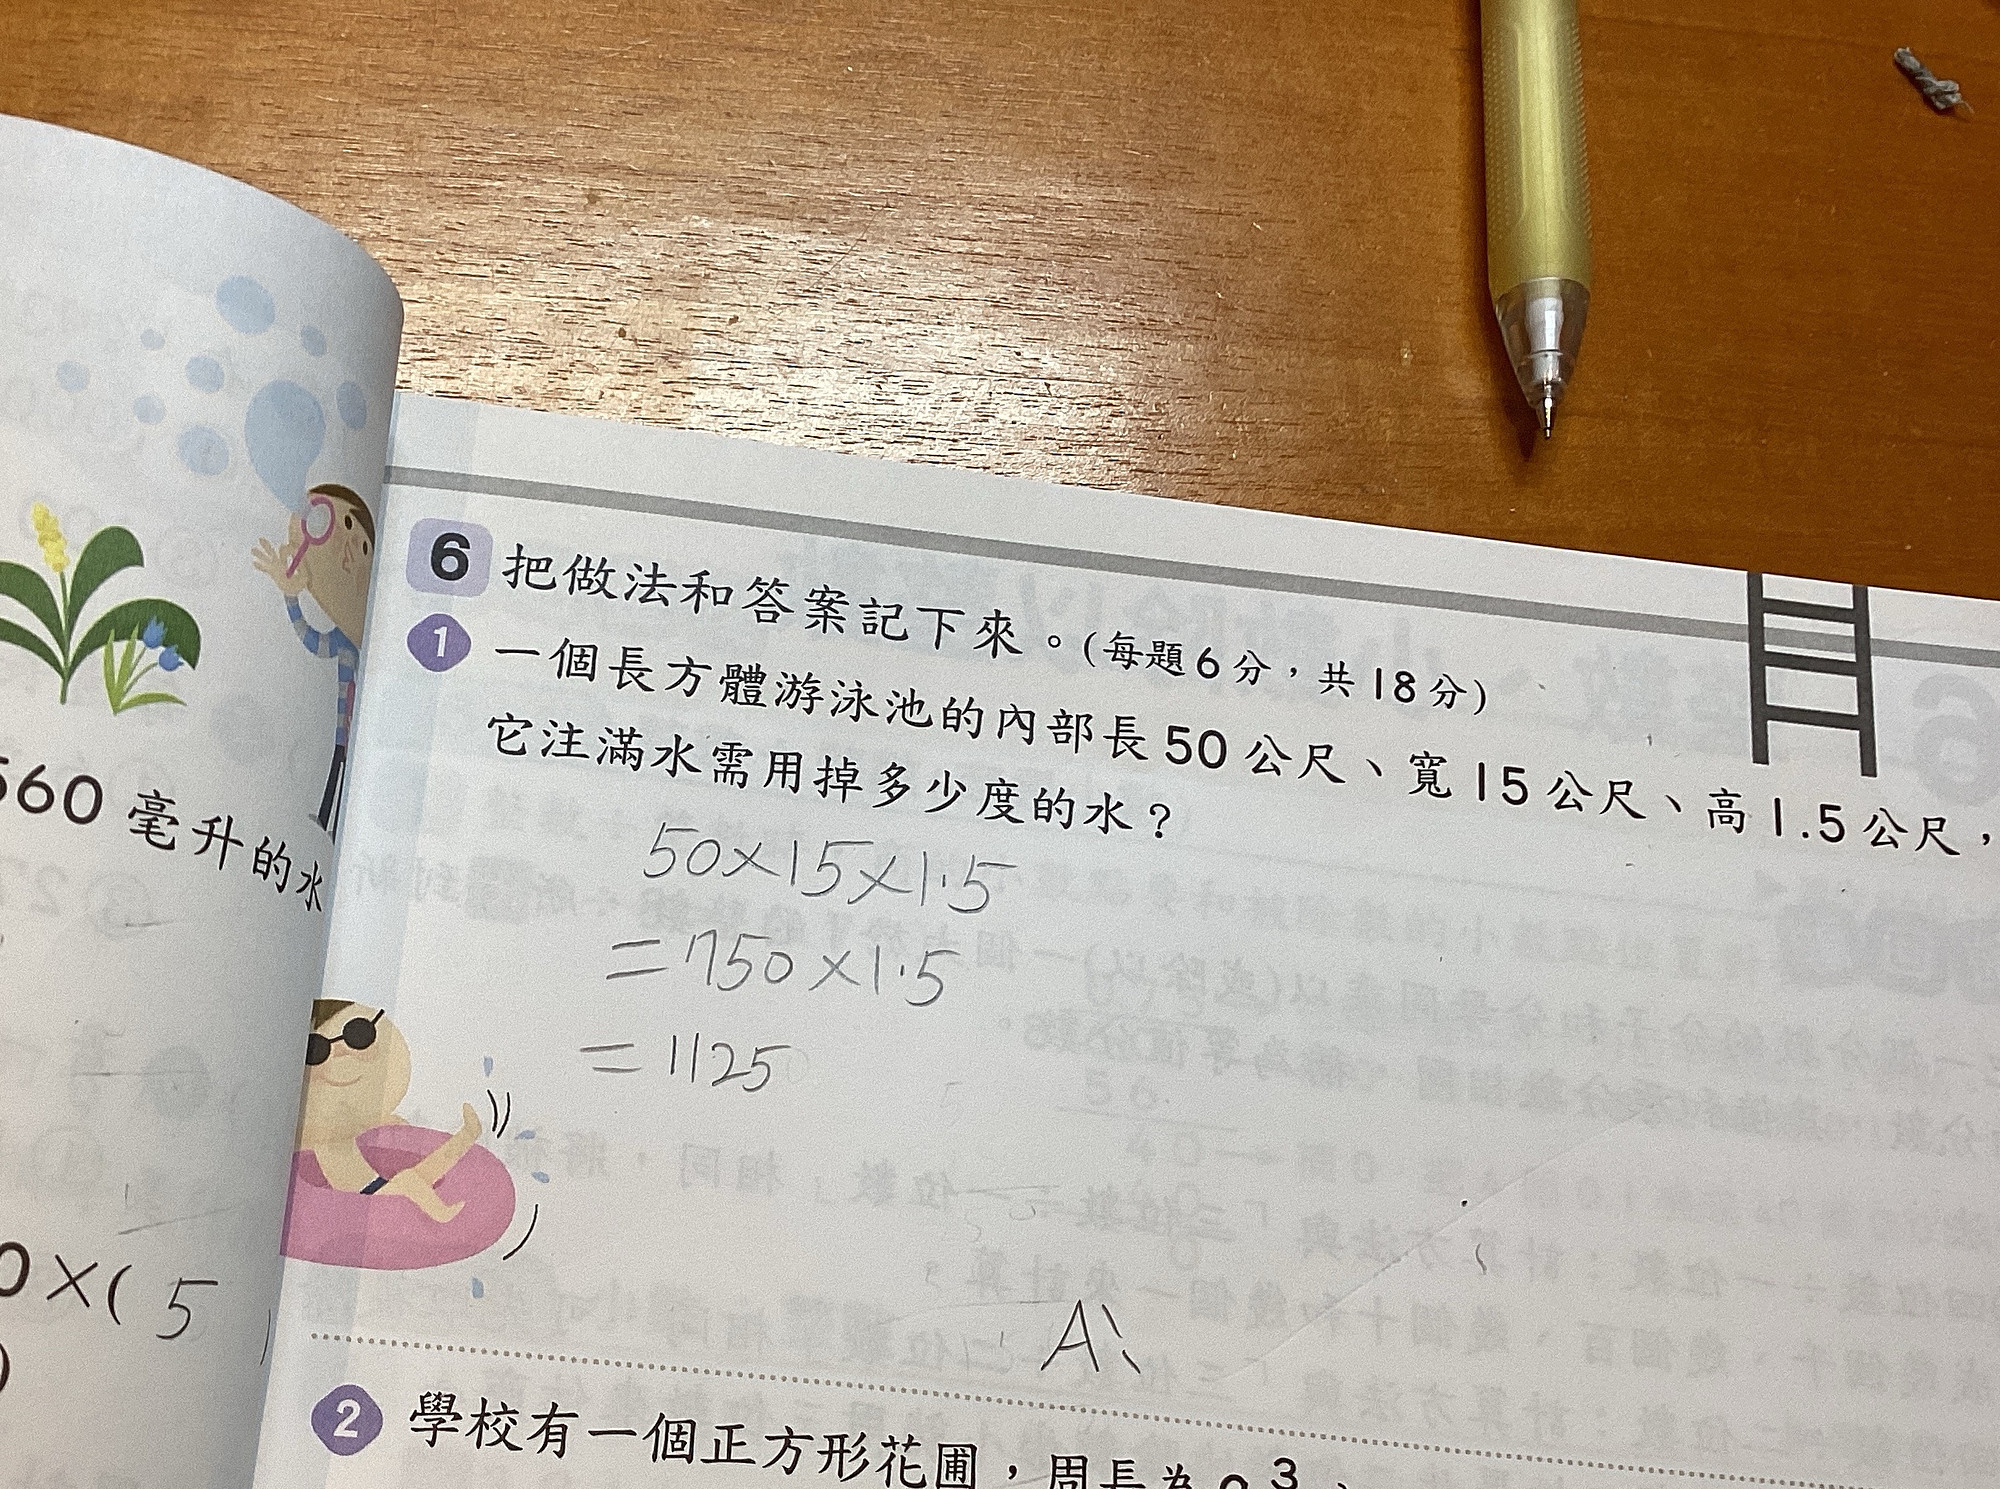 560 毫升的水
0×( 5 )
6 把做法和答案記下來。(每題6分,共18分)
1 一個長方體游泳池的內部長50公尺、寬15公尺、高1.5公尺,
它注滿水需用掉多少度的水?
50×15×1.5
=750×1.5
=1125
A:
2 學校有一個正方形花圃,周長為